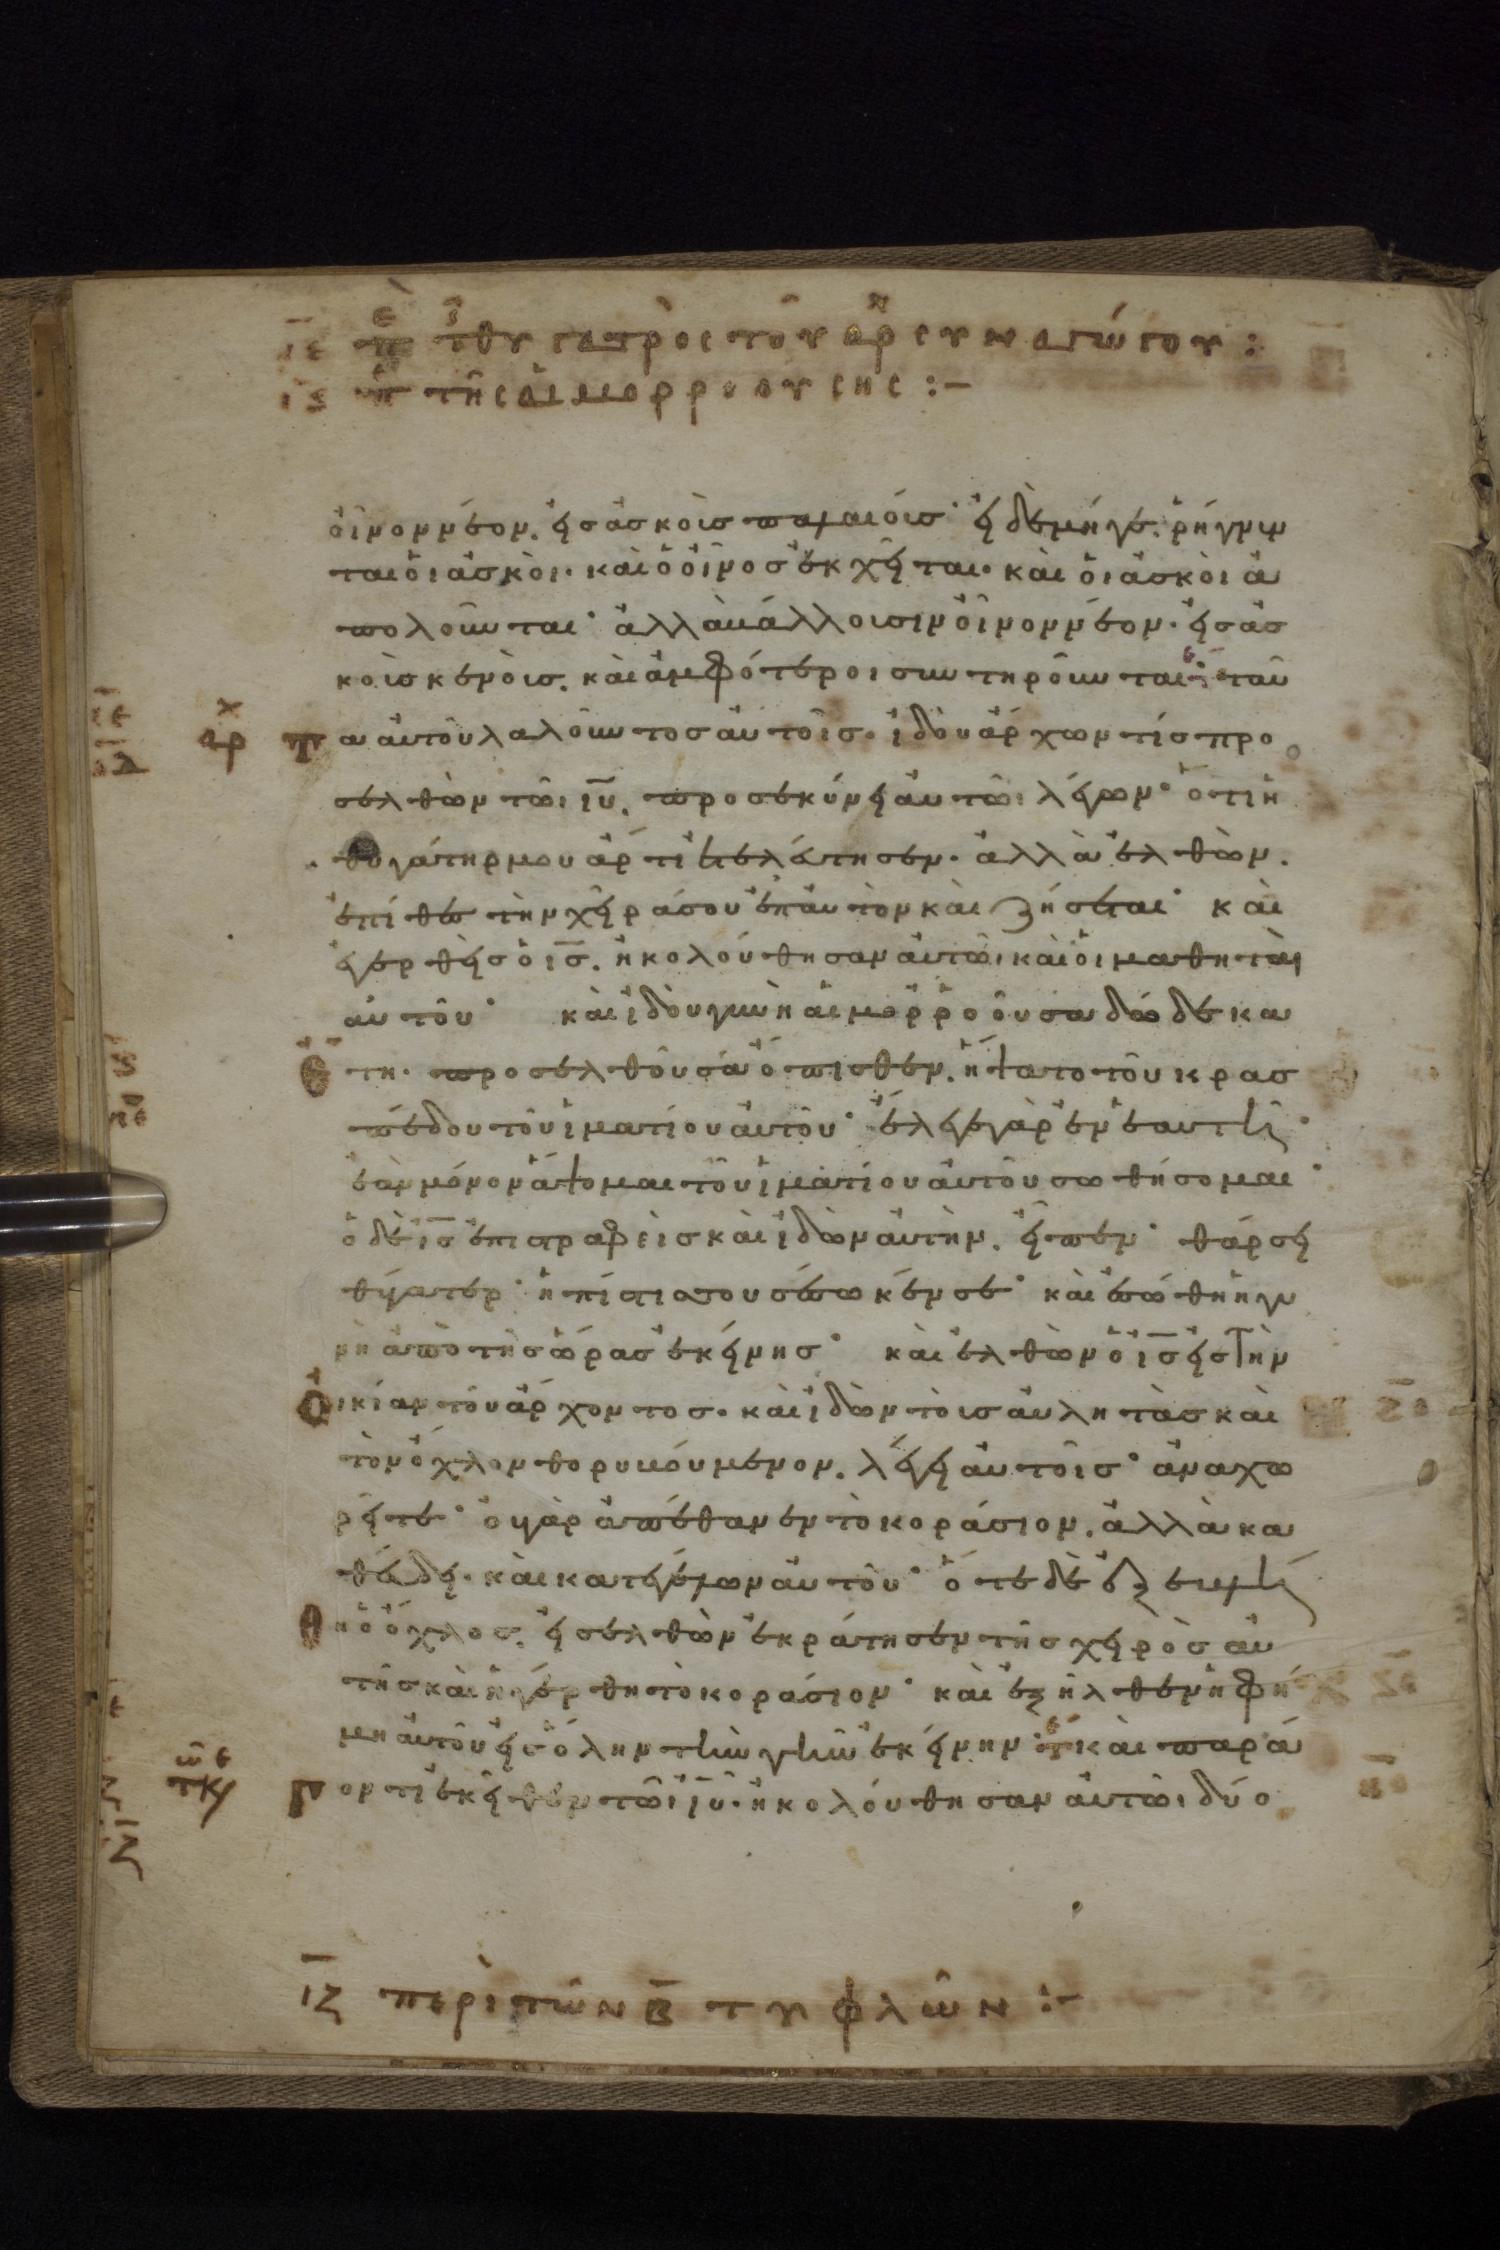 ιε πε τ θυγατρὸς τοῦ ἀρχισυναγώγου :
ις πε τῆς αἱμορροούσης :-
οἶνον νέον εἰς ἀσκοὺς παλαιούς· εἰ δὲ μήγε, ῥήγνυν
ται οἱ ἀσκοί· καὶ ὁ οἶνος ἐκχεῖται· καὶ οἱ ἀσκοὶ ἀ
πολοῦνται· ἀλλὰ βάλλουσιν οἶνον νέον εἰς ἀσ
κοὺς καινοὺς, καὶ ἀμφότεροι συντηροῦνται· ταῦ
τα αὐτοῦ λαλοῦντος αὐτοῖς· ἰδοὺ ἄρχων τίς προ
σελθὼν τῶι ιυ, προσεκύνει αὐτῶι λέγων· ὅτι ἡ
θυγάτηρ μου ἄρτι ἐτελεύτησεν· ἀλλὰ ἐλθὼν,
ἐπίθες τὴν χεῖρά σου ἐπ αὐτὴν καὶ ζήσεται· καὶ
ἐγερθεὶς ὁ ις, ἠκολούθησαν αὐτῶι καὶ οἱ μαθηταὶ
αὐτοῦ· καὶ ἰδοὺ γυνὴ αἱμορροοῦσα δώδεκα
ἔτη· προσελθοῦσα ὄπισθεν, ἥψατο τοῦ κρασ
πέδου τοῦ ἱματίου αὐτοῦ· ἔλεγε γὰρ ἐν ἑαυτῆ·
ἐὰν μόνον ἅψομαι τοῦ ἱματίου αὐτοῦ σωθήσομαι·
ὁ δὲ ις ἐπιστραφεὶς καὶ ἰδὼν αὐτὴν, εἶπεν· θάρσει
θύγατερ· ἡ πίστις σου σέσωκέν σε· καὶ ἐσώθη ἡ γυ
νὴ ἀπὸ τῆς ὥρας ἐκείνης· καὶ ἐλθὼν ὁ ις εἰς τὴν
οἰκίαν τοῦ ἄρχοντος· καὶ ἰδὼν τοὺς αὐλητὰς καὶ
τὸν ὄχλον θορυβούμενον, λέγει αὐτοῖς· ἀναχω
ρεῖτε· οὐ γὰρ ἀπέθανεν τὸ κοράσιον, ἀλλὰ κα
θεύδει· καὶ κατεγέλων αὐτοῦ· ὅτε δὲ ἐξεβλή
θη ὁ ὄχλος, εἰσελθὼν ἐκράτησεν τῆς χειρὸς αὐ
τῆς καὶ ἠγέρθη τὸ κοράσιον· καὶ ἐξῆλθεν ἡ φή
μη αὐτοῦ εἰς ὅλην τὴν γῆν ἐκείνην· καὶ παρά
γοντι ἐκεῖθεν τῶι ιυ· ἠκολούθησαν αὐτῶι δύο
ιζ περὶ τῶν β τυφλῶν :-